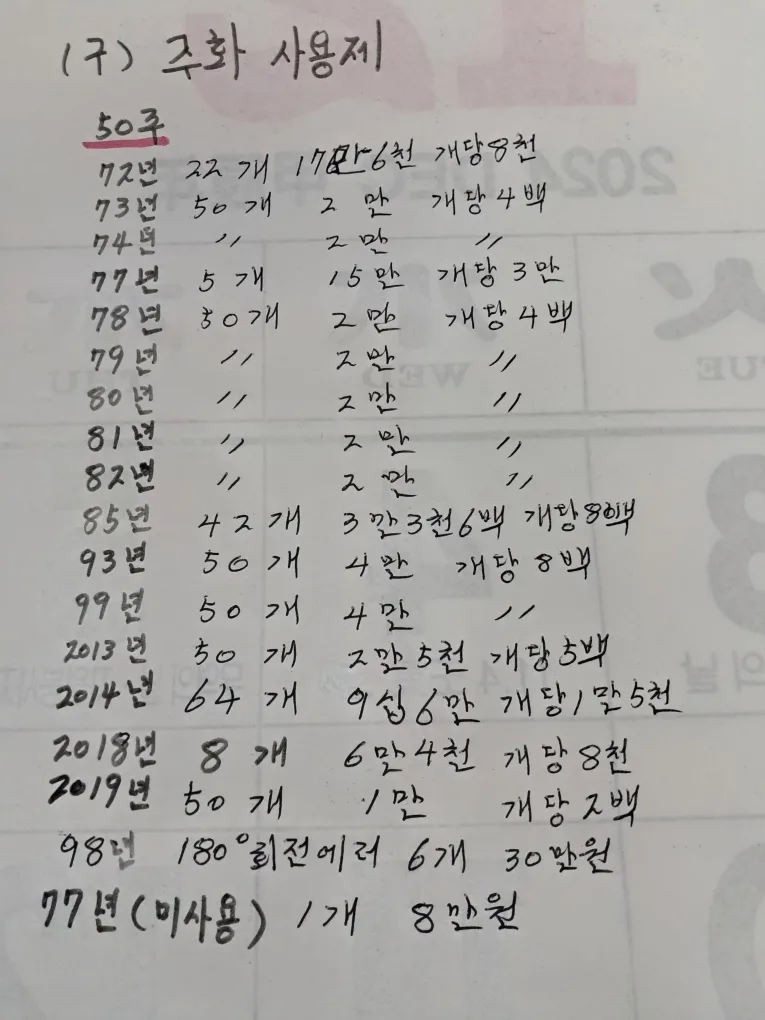 (구) 주화 사용제
50주
72년 22개 17만6천 개당8천
73년 50개 2만 개당4백
74년 〃 2만 〃
77년 5개 15만 개당3만
78년 50개 2만 개당4백
79년 〃 2만 〃
80년 〃 2만 〃
81년 〃 2만 〃
82년 〃 2만 〃
85년 42개 3만3천6백 개당8백
93년 50개 4만 개당8백
99년 50개 4만 〃
2013년 50개 2만5천 개당5백
2014년 64개 9십6만 개당1만5천
2018년 8개 6만4천 개당8천
2019년 50개 1만 개당2백
98년 180°회전에러 6개 30만원
77년(미사용) 1개 8만원